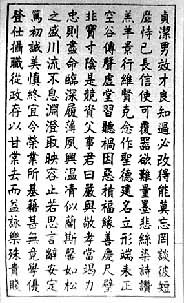 貞潔男效才良知過必改得能莫忘罔談彼短
靡恃己長信使可覆器欲難量墨悲絲染詩讚
羔羊景行維賢克念作聖德建名立形端表正
空谷傳聲虛堂習聽禍因惡積福緣善慶尺璧
非寶寸陰是競資父事君曰嚴與敬孝當竭力
忠則盡命臨深履薄夙興溫凊似蘭斯馨如松
之盛川流不息淵澄取映容止若思言辭安定
篤初誠美慎終宜令榮業所基籍甚無竟學優
登仕攝職從政存以甘棠去而益詠樂殊貴賤